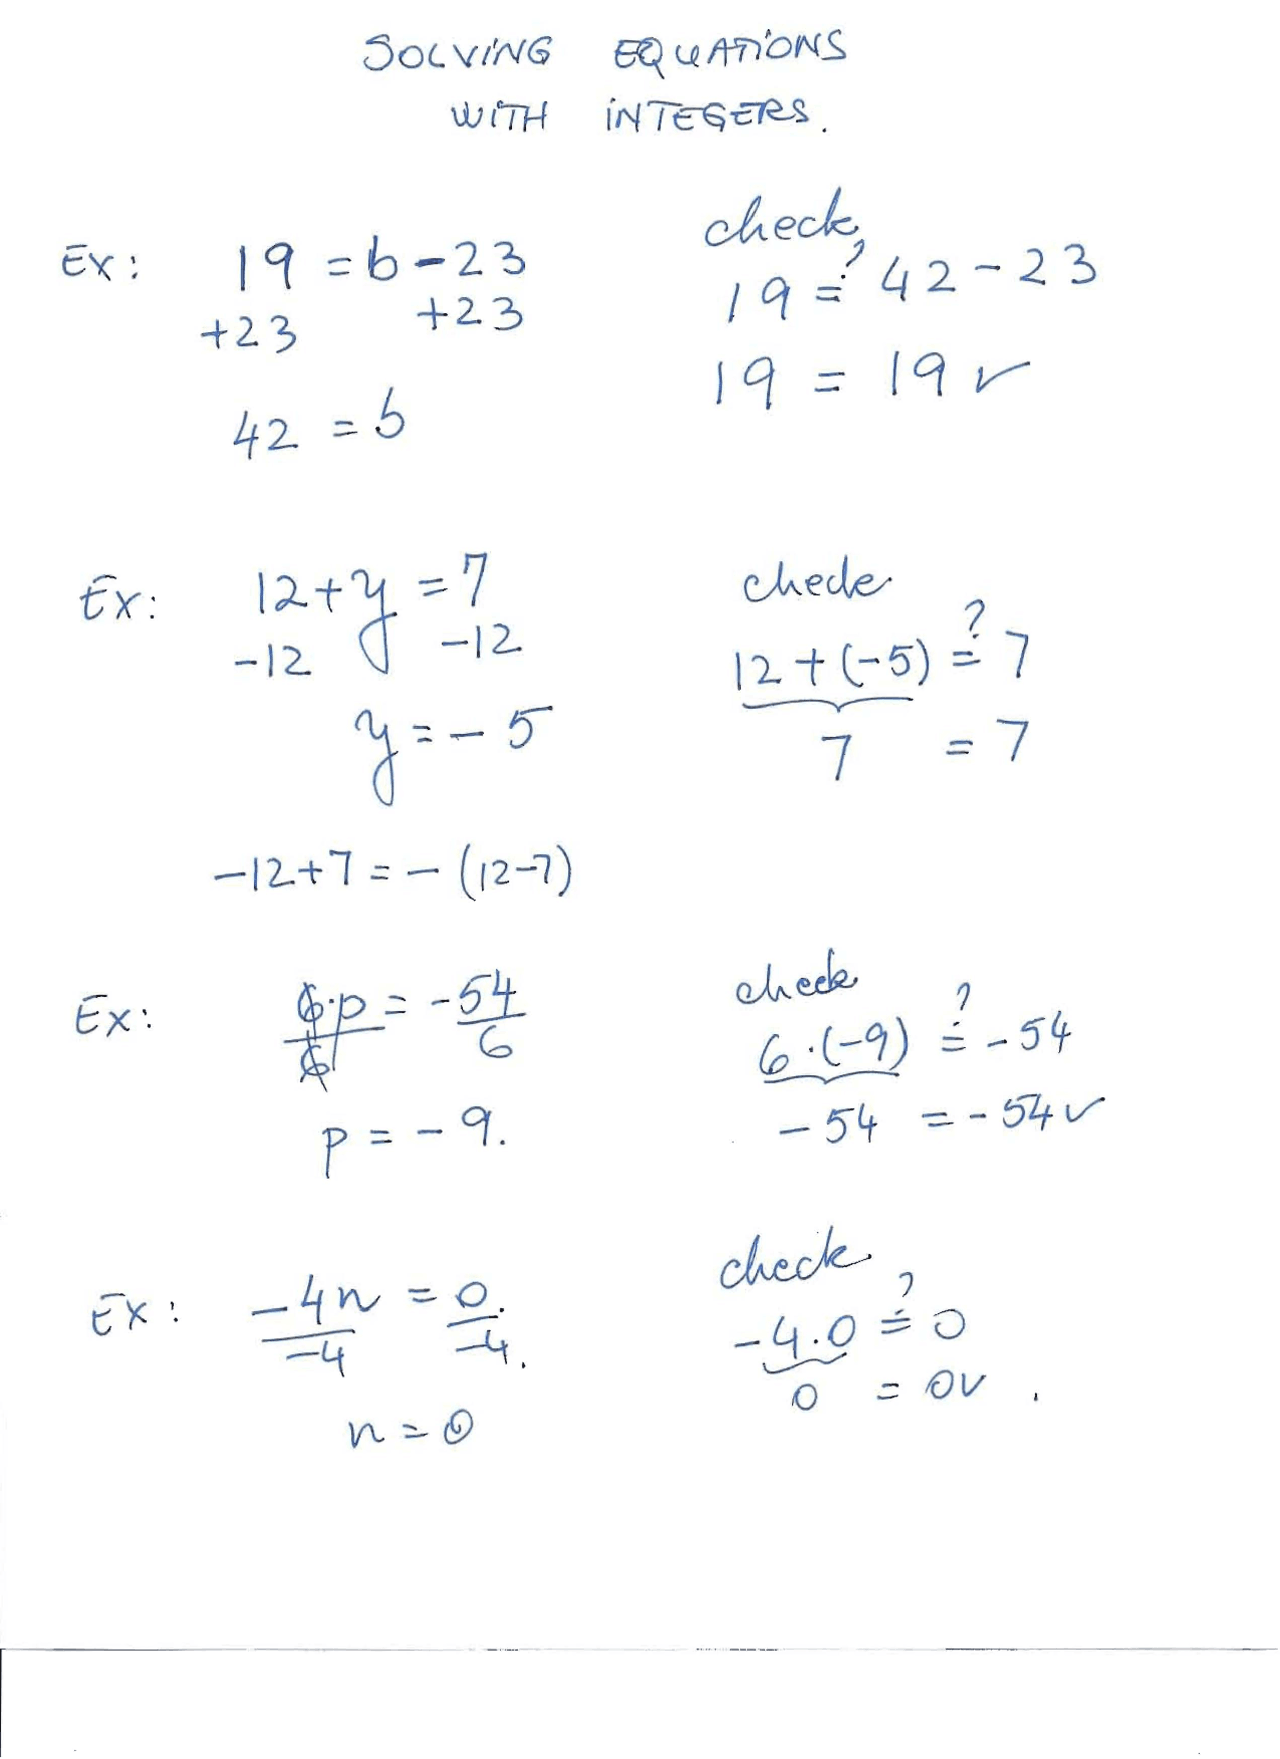 SOLVING EQUATIONS
WITH INTEGERS.
Ex: 19 = b - 23
+23 +23
42 = b
check
19 ≟ 42 - 23
19 = 19 ✓
Ex: 12 + y = 7
-12 -12
y = - 5
-12 + 7 = - (12-7)
check
12 + (-5) ≟ 7
7 = 7
Ex: 6·p = -54
6 6
p = - 9.
check
6·(-9) ≟ - 54
- 54 = - 54 ✓
Ex: -4n = 0.
-4 -4.
n = 0
check
-4.0 ≟ 0
0 = 0 ✓